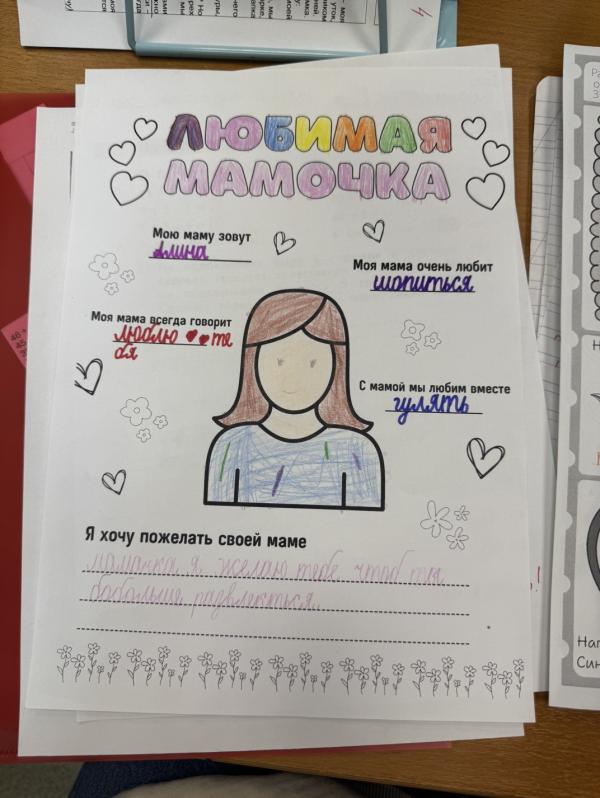 ЛЮБИМАЯ
МАМОЧКА
Мою маму зовут
Алина
Моя мама очень любит
шопиться
Моя мама всегда говорит
люблю тe
бя
С мамой мы любим вместе
гулять
Я хочу пожелать своей маме
мамачка я желаю тебе чтоб ты
бобольше развлекться.